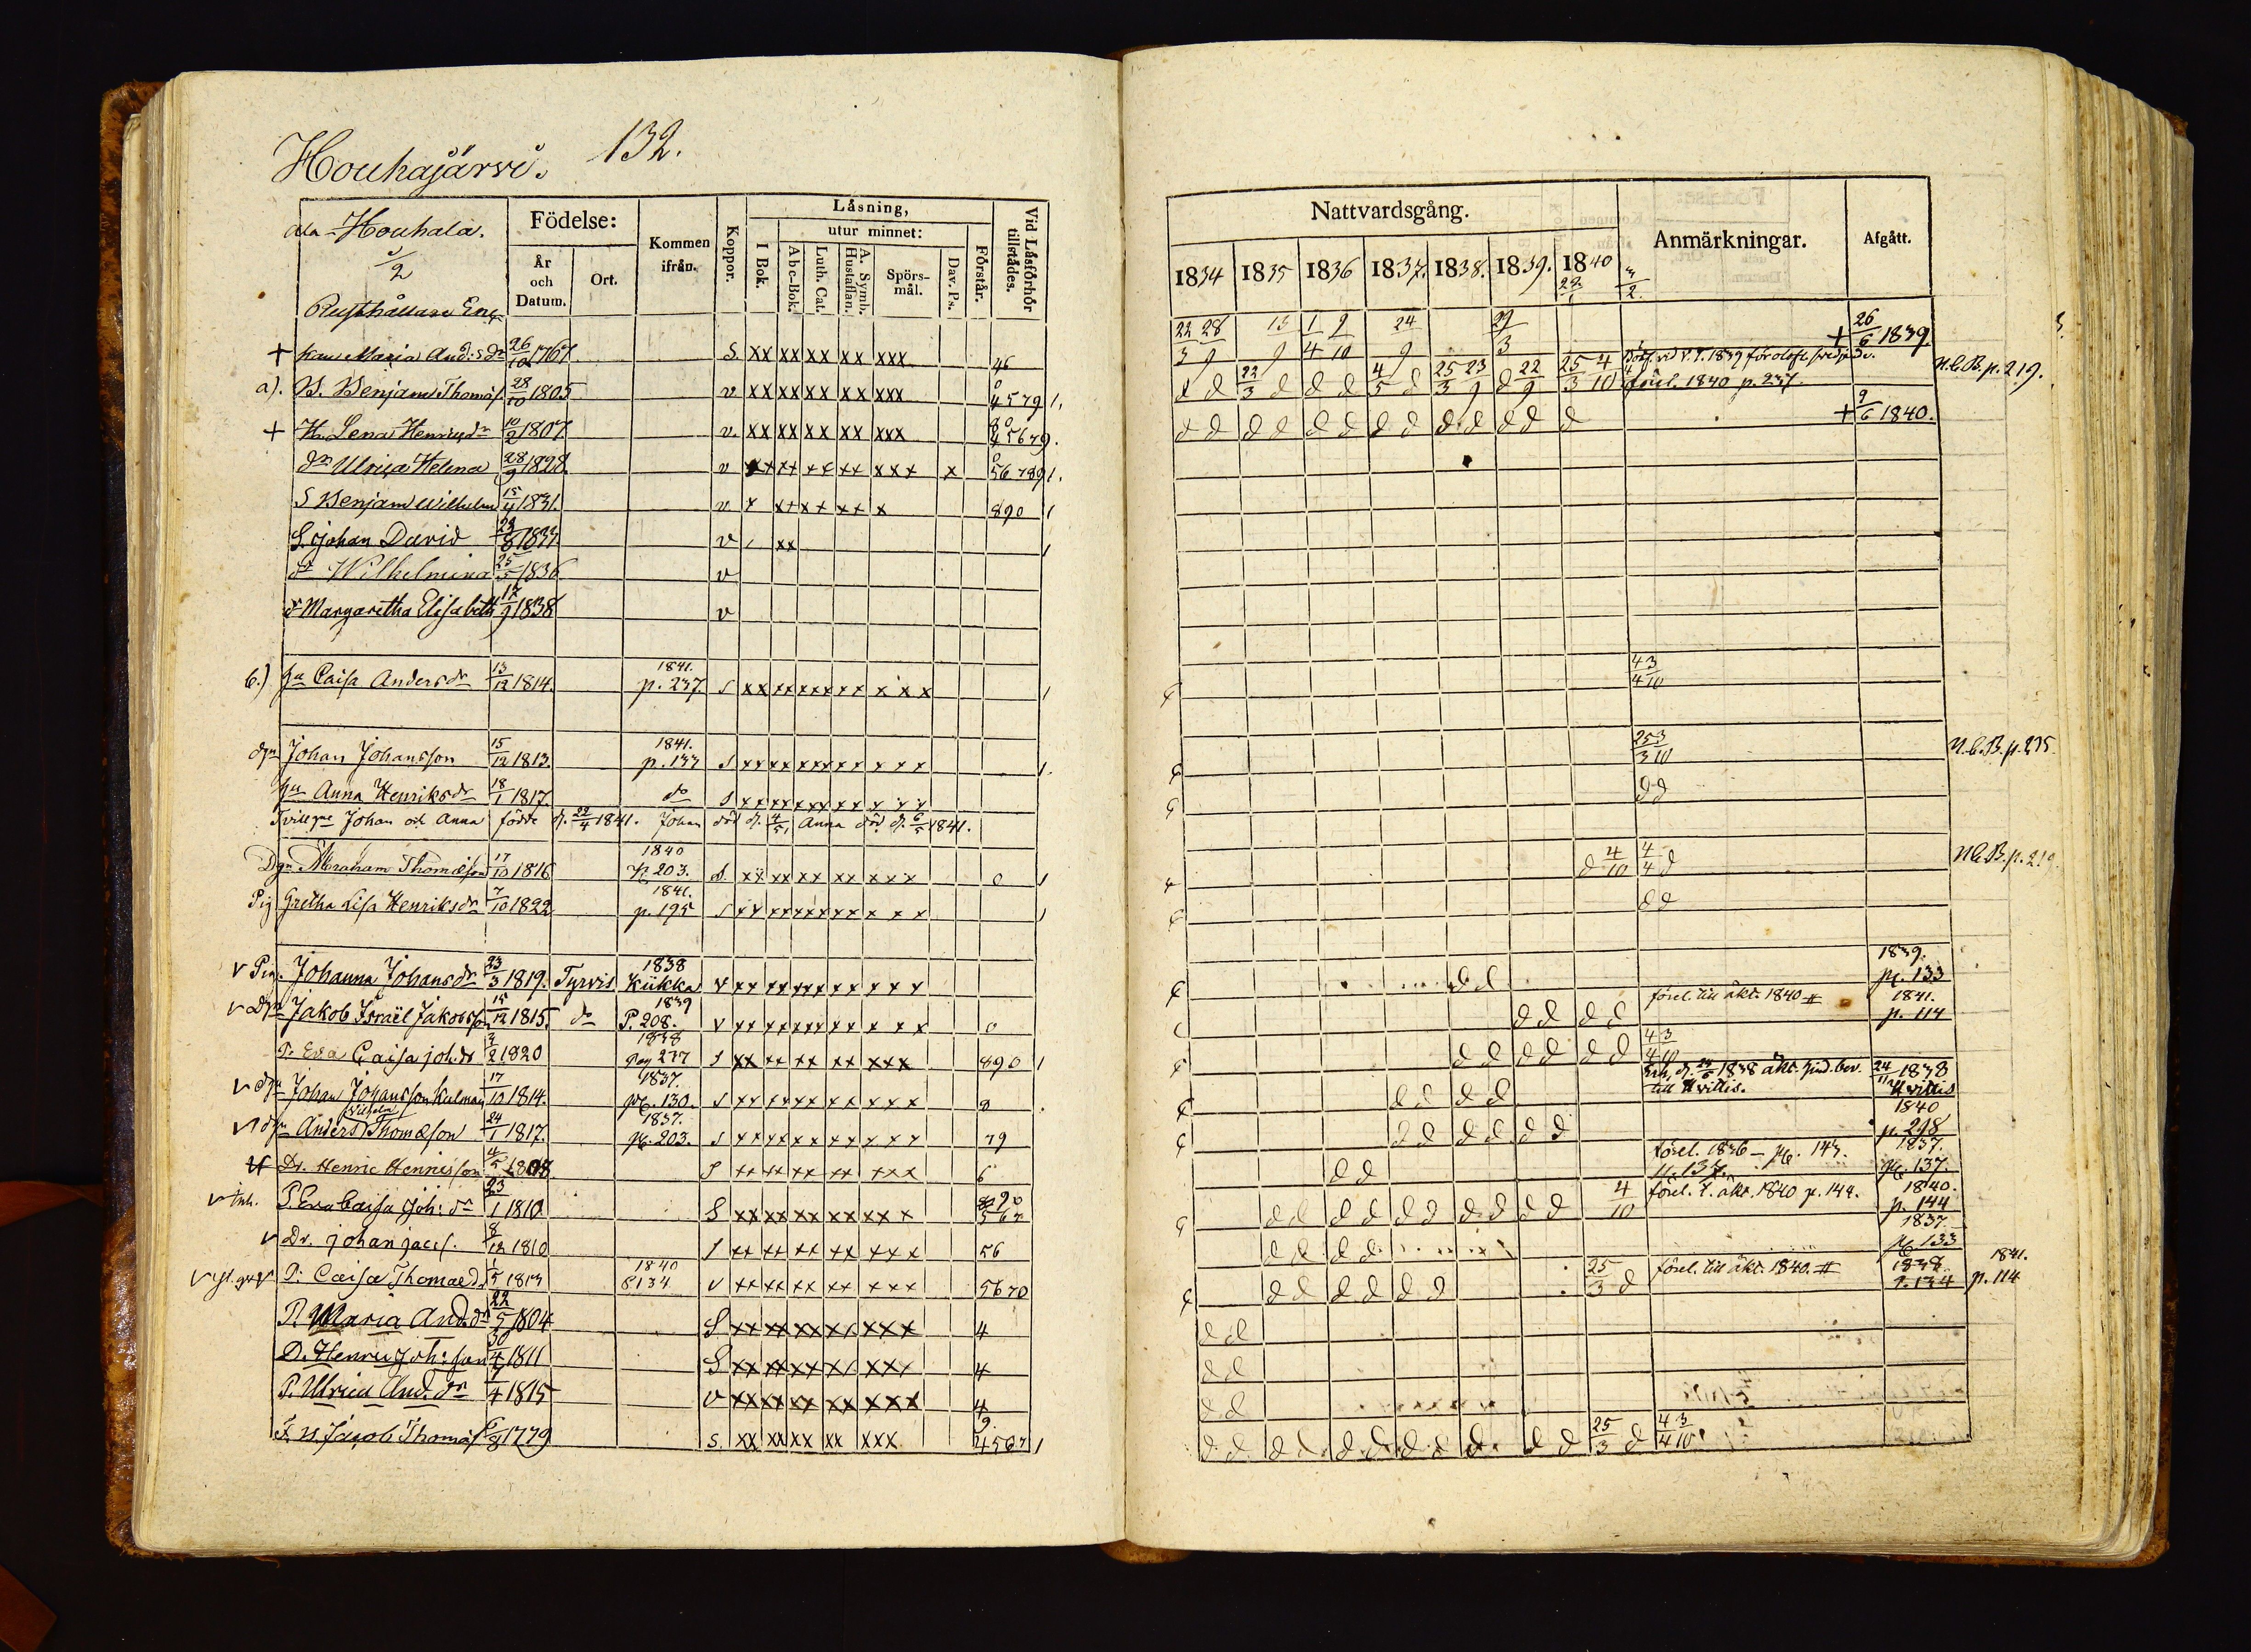 Houhajärvi. 132.
Ala Houhala.
1/2
Födelse: År och Datum. Ort. Kommen ifrån. Koppor. Läsning, I Bok. utur minnet: Abc-Bok. Luth. Cat. A. Symb. Hustaflan. Spörs-mål. Dav. Ps. Förstår. Vid Läsförhör tillstädes.
Nattvardsgång. 1834 1835 1836 1837. 1838. 1839. 1840 Anmärkningar. Afgått.
Rusthållare Enk
+ fru Maria And:sdr 26/10 1767 S. xx xx xx xx xxx 46 22/3 28/9 13/9 1/4 9/10 24/9 29/3 + 26/6 1839
a). B. Benjam Thomas. 28/10 1805 v xx xx xx xx xxx 4579 1. d d 22/3 d d d 4/5 d 25/3 23/9 d 22/9 25/3 4/10 förel. 1840 p. 237. N.C.B. p. 219.
+ H. Lena Henricdr 10/2 1807 v. xx xx xx xx xxx 45679. d d d d d d d d d d d d d + 9/6 1840.
dr Ulrica Helena 28/9 1828 v xx xx xx xx xxx x 56789 1.
S Benjam Wilhelm 15/4 1831. v x xx xx xx x 890 1
S. Johan David 23/8 1833 v xx 1
dr Wilhelmina 25/5 1836 v
dr Margaretha Elisabeth 17/9 1838 v
b.) hu Caisa Andersdr 13/12 1814. 1841. p. 237 s xx xx xx xx x x x 1 4/4 3/10
dgn Johan Johansson 15/12 1813. 1841. p. 133 s xx xx xx xx x x x 1. 25/3 3/10 N.C.B. p. 235.
hu Anna Henriksdr 18/1 1817. do s xx xx xx xx x x x d d
Tvillgne Johan och Anna födde d. 22/4 1841. Johan död d. 4/5, Anna död d. 6/5 1841.
Dgn Abraham Thomasson 17/10 1816 1840 p 203. s. xx xx xx xx x x x 0 1 d 4/10 4/4 d N.C.B. p. 219.
Pig Gretha Lisa Henriksdr 7/10 1822 1841. p. 195 s xx xx xx xx x x x 1 d d
v Pig. Johanna Johansdr 23/3 1819. Tyrvis 1838 Kiikka v xx xx xx xx x x x d d 1839. p. 133
v Dgn Jakob Israël Jakobsson 15/12 1815. do 1839 P. 208. v xx xx xx xx x x x 0 d d d d förel. till äkt. 1840 # 1841. p. 114
P. Eva Caisa joh.dr 3/2 1820 1838 pag 237 s xx xx xx xx xxx 890 1 d d d d d d 4/4 3/10
v dgn Johan Johansson Kulman 17/10 1814. 1837. pg. 130. s xx xx xx xx x x x 8 d d d d 1838 äkt. till Hvittis. 24/11 1838 Hvittis
v dgn Anders Vilhelm Thomasson 24/1 1817. 1837. pg. 203. s xx xx xx xx x x x 79 d d d d d d 1840 p. 218
Dr. Henric Henricsson 4/5 1808 s xx xx xx xx xxx 6 d d förel. 1836 - pg. 143. 1837. pg. 137.
v inh. P. Eva Caisa Joh: dr 23/1 1810. S xx xx xx xx xx x 890 567 d d d d d d d d d d 4/10 förel. t. äkt. 1840 p. 144. 1840. p. 144
v Dr. johan jacs. 8/12 1810 s xx xx xx xx xxx 56 d d d d 1837. pg 133
P: Caisa Thomædr 1/5 1813 1840 P134 v xx xx xx xx xxx 5670 d d d d d d 25/3 d förel. till äkt. 1840. # 1838. p. 134 1841. p. 114
P. Maria And.dr 22/5 1804 S xx xx xx xx xxx 4 d d
D. Henric Joh:son 30/4 1811 S xx xx xx xx xxx 4 d d
P. Ulrica And. dr 7/4 1815 v xx xx xx xx xxx 4 d d
F. B. Jacob Thomas 6/8 1779 s. xx xx xx xx xxx 9. 4567 1 d d d d d d d d d d d 25/3 d 4/4 3/10